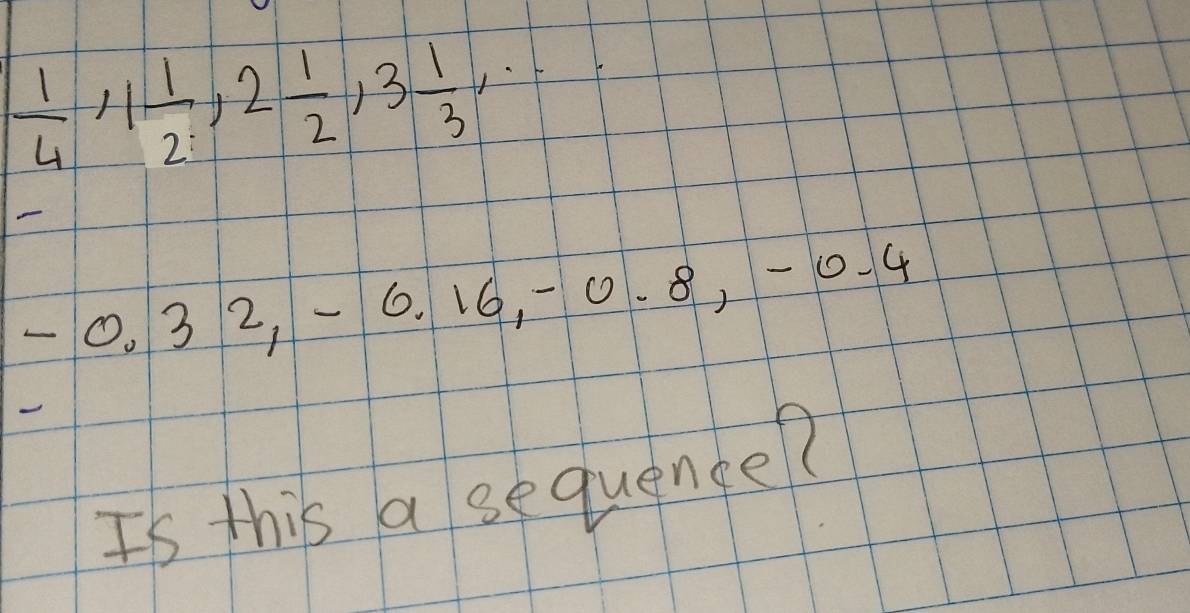 1/4, 1 1/2, 2 1/2, 3 1/3, ...
-
-0.32, -0.16, -0.8, -0.4
-
Is this a sequence?